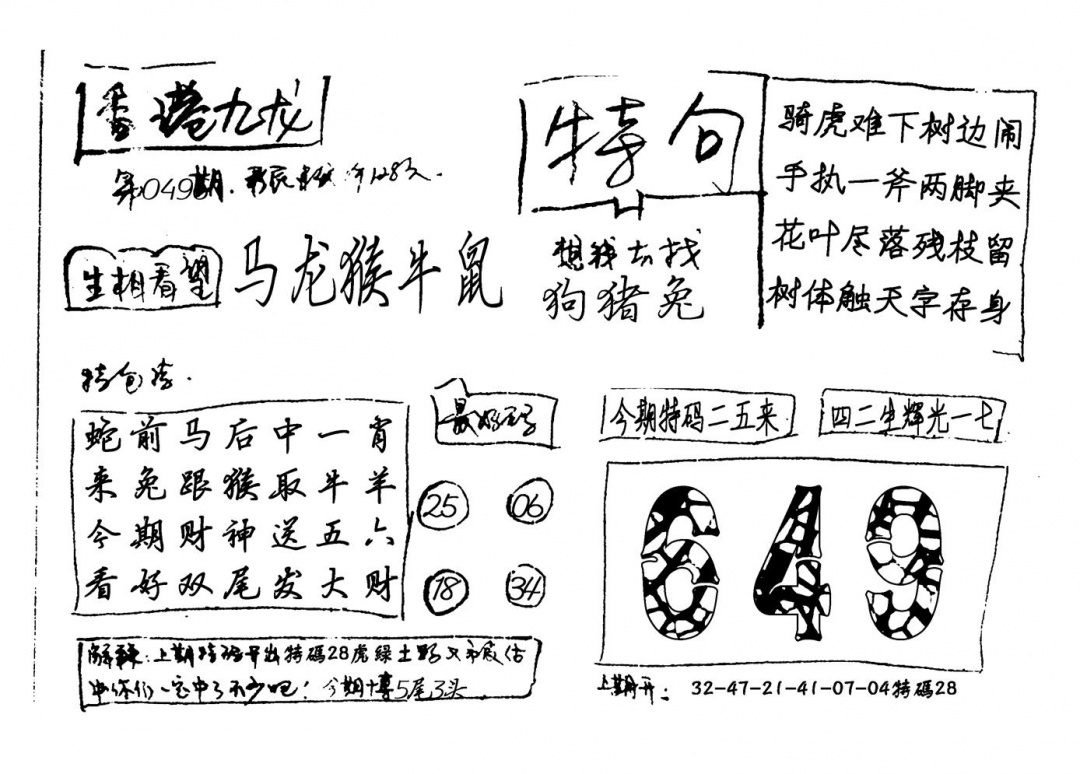 香港九龙
第049期.
特句
骑虎难下树边闹
手执一斧两脚夹
花叶尽落残枝留
树体触天字存身
生相看望
马龙猴牛鼠
想我去找
狗猪兔
特包
蛇前马后中一肖
来兔跟猴取牛羊
今期财神送五六
看好双尾发大财
最好
25 06
18 34
今期特码二五来
四二生辉光一七
649
解释:上期特码开出特碼28虎绿土
中你们一定中了不少吧!今期博5尾3头
上期开: 32-47-21-41-07-04特碼28